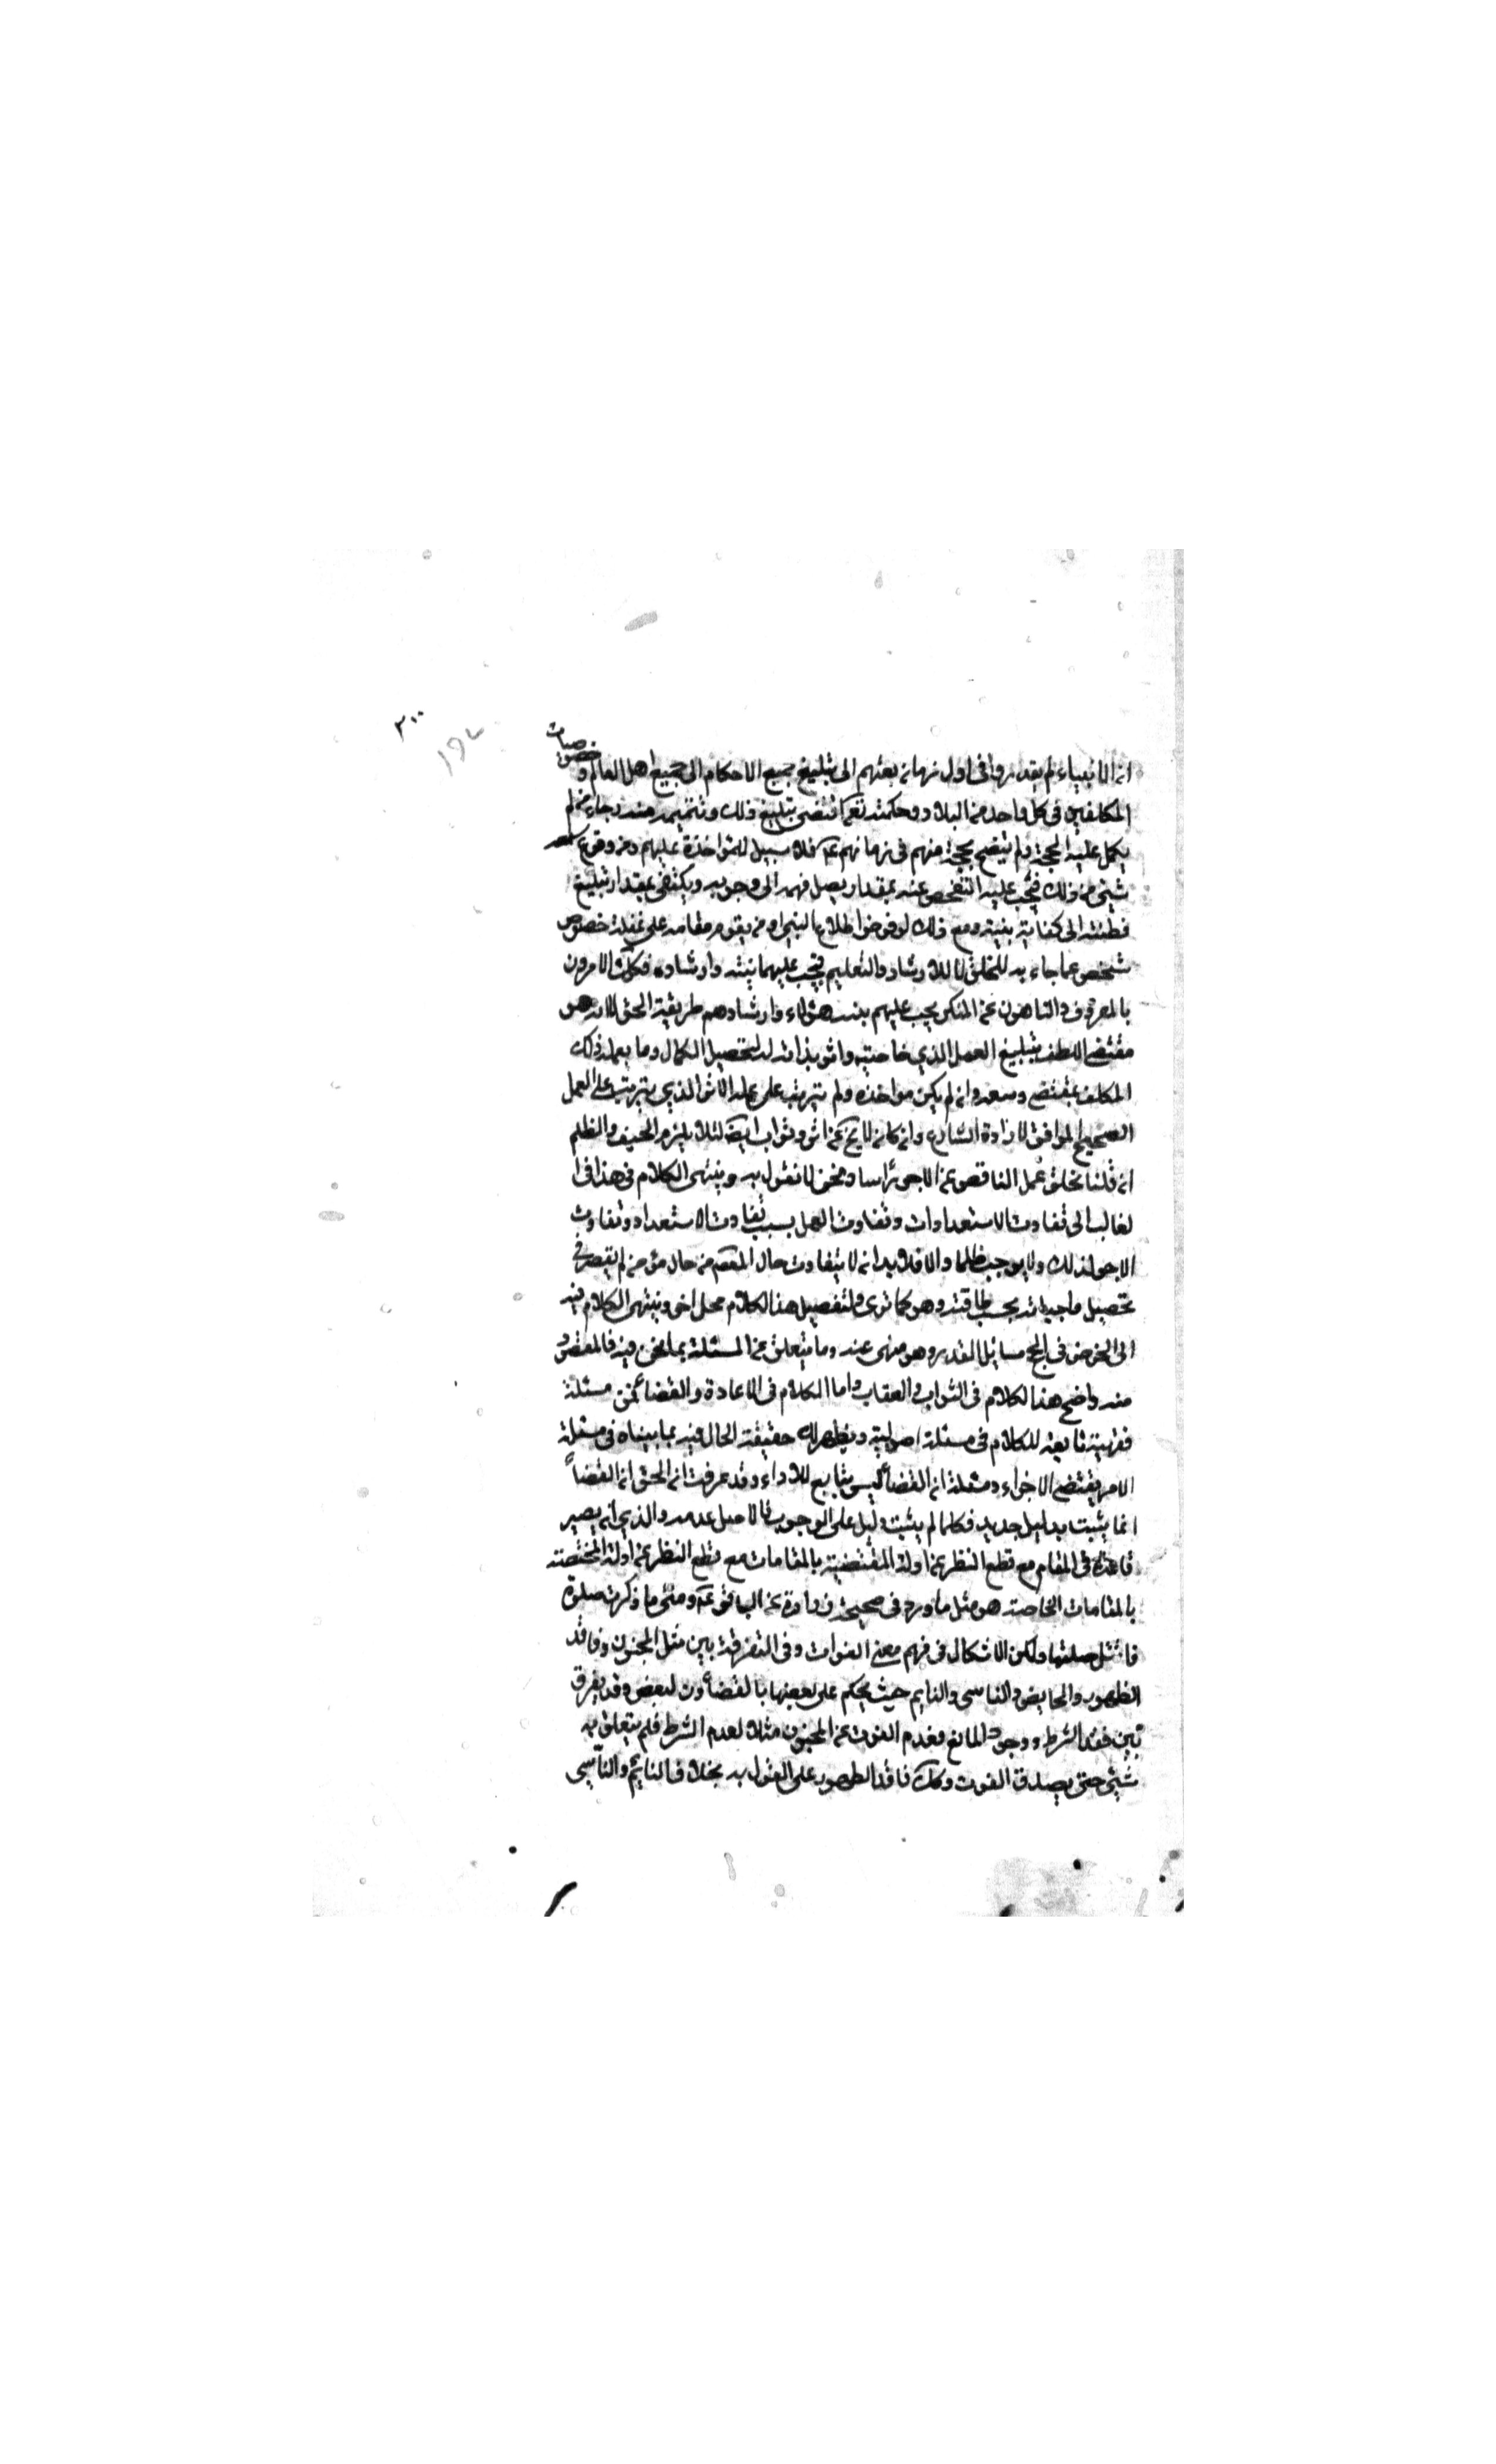 ٣٠٠
١٩٢
ان الانبياء لم يقدروا فى اول زمان بعثهم الى تبليغ جميع الاحكام الى جميع اهل العالم وخصوصيات
المكلفين فى كل واحد من البلاد وحكمته تعالى اقتضى تبليغ ذلك وتتميمه منه رجاء من لم
يكمل عليه الحجة ولم يتضح محجة منهم فى زمانهم فلا سبيل للمؤاخذة عليهم ومن وقع
شيئى من ذلك فيجب عليه التفحص عنه بمقدار يصل فهمه الى وجوبه ويكتفى بمقدار تبليغ
فطنته الى كفاية بنيته ومع ذلك لو فرض اطلاع النبى او من يقوم مقامه على غفلة خصوص
شخص عما جاء به للخلق للارشاد والتعليم فيجب عليهما نبثه وارشاده فكك الامرون
بالمعروف والناهون عن المنكر يجب عليهم هؤلاء وارشادهم طريقة الحق لانه هو
مقتضى اللطف بتبليغ العمل الذي خاصيته واثره بذاته له لتحصيل الكمال وما يعمله ذلك
المكلف بمقتضى وسعه وان لم يكن مواخذه ولم يترتب على عمله الاثر الذي يترتب على العمل
الصحيح الموافق لارادة الشارع وان كان لا يخ عن اثر وثواب ايضا لئلا يلزم الحيف والظلم
ان قلنا بخلو عمل الناقص عن الاجر راسا ونحن لا نقول به وينتهى الكلام فى هذا فى ا
لغالب الى تفاوت الاستعدادات وتفاوت العمل بسبب تفاوت الاستعداد وتفاوت
الاجر لذلك ولا يوجب ظلما والا فلا بد ان لا يتفاوت حال من حال مؤمن لم يقصر فى
تحصيل واجباته بحسب طاقته وهو كما ترى ولتفصيل هذا الكلام محل اخر وينتهى الكلام فيه
الى الخوض فى مسائل القدر وهو منهى عنه وما يتعلق من المسئلة بما نحن فيه فالمقصود
منه واضح هذا الكلام فى الثواب والعقاب واما الكلام فى الاعادة والقضاء فهى مسئلة
فقهية تابعة للكلام فى مسئلة اصولية ويظهر لك حقيقة الحال فيه بما بيناه فى مسئلة
الامر يقتضى الاجزاء ومسئلة ان القضاء ليس بتابع للاداء وقد عرفت ان الحق ان القضاء
انما يثبت بدليل جديد فكلما لم يثبت دليل على الوجوب فالاصل عدمه والذي ان يصير
قاعدة فى المقام مع قطع النظر عن ادلة المقتضية بالمقامات مع قطع النظر عن ادلة المختصة
بالمقامات الخاصة هو مثل ما ورد فى صحيحة زرارة عن الباقر ع ومتى ما ذكرت صلوة
فاتتك صليتها ولكن الاشكال فى فهم معنى الفوات وفى التفرقة بين مثل المجنون وفاقد
الطهور والحايض والناسى والنايم حيث يحكم على بعضها بالقضاء دون لبعض وقد يفرق
بين فقد الشرط ووجود المانع فعدم الفوت عن المجنون مثلا لعدم الشرط فلم يتعلق به
شيئى حتى يصدق الفوت وكك فاقد الطهور على القول به بخلاف النايم والناسى